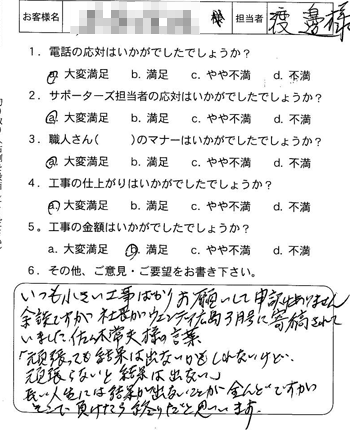 お客様名 様 担当者 渡邉様
1．電話の応対はいかがでしたでしょうか？
a. 大変満足 b. 満足 c. やや不満 d. 不満
2．サポーターズ担当者の応対はいかがでしたでしょうか？
a. 大変満足 b. 満足 c. やや不満 d. 不満
3．職人さん( )のマナーはいかがでしたでしょうか？
a. 大変満足 b. 満足 c. やや不満 d. 不満
4．工事の仕上がりはいかがでしたでしょうか？
a. 大変満足 b. 満足 c. やや不満 d. 不満
5．工事の金額はいかがでしたでしょうか？
a. 大変満足 b. 満足 c. やや不満 d. 不満
6．その他、ご意見・ご要望をお書き下さい。
いつも小さい工事ばかりお願いして申訳ありません
余談ですが社長がウェンディ広島3月号に寄稿されて
いました。佐々木常夫様の言葉
「頑張っても結果は出ないかもしれないけど、
頑張らないと結果は出ない」
長い人生には結果が出ないことが全んどですが
そこで負けたら終りだと思っています。